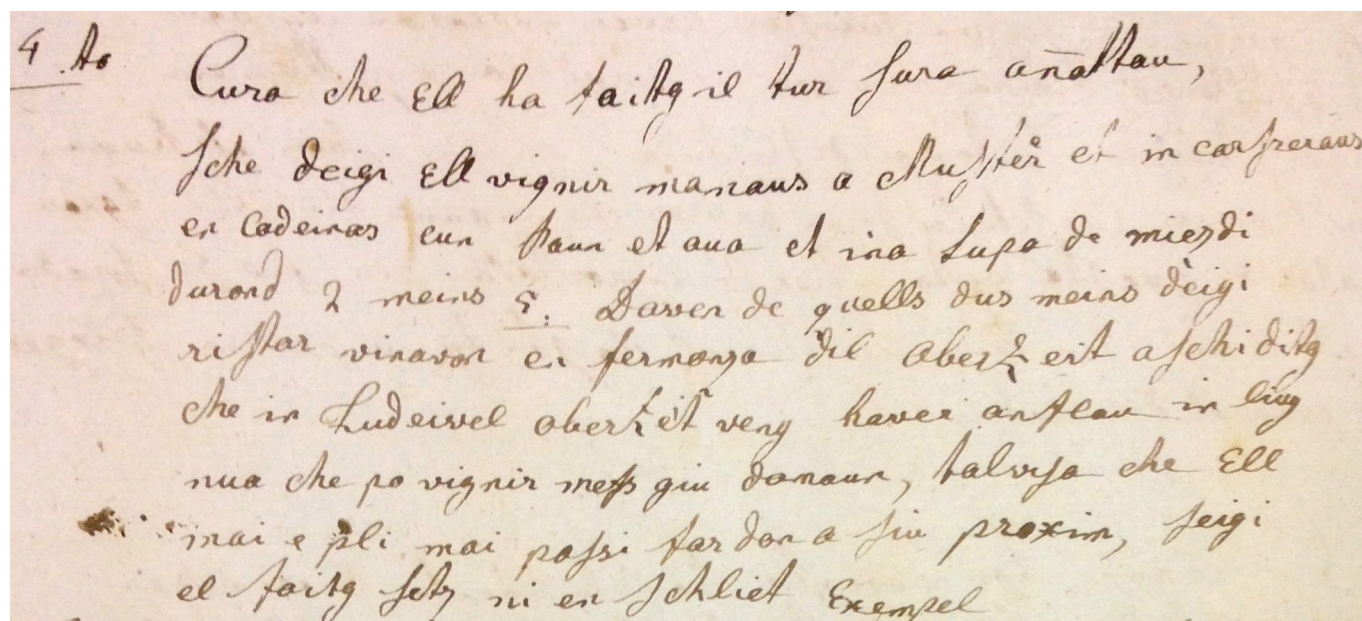 4 to Cura che Ell ha faitg il tur sura anñattau,
sche deigi Ell vignir manaus a Mustér et in carsreraus
en Cadeinas cun Paun et aua et ina supa de miezdi
durond 2 meins 5. Daven de quells dus meins deigi
ristar vinavon en fermonza dil Oberkeit aschi ditg
che in Ludeivel Oberkeit veng haver anflau in liug
nua che po vignir mess giu domaun, talvisa che Ell
mai e pli mai possi far don a siu proxim, seigi
el faitg setz ni en schliet Exempel